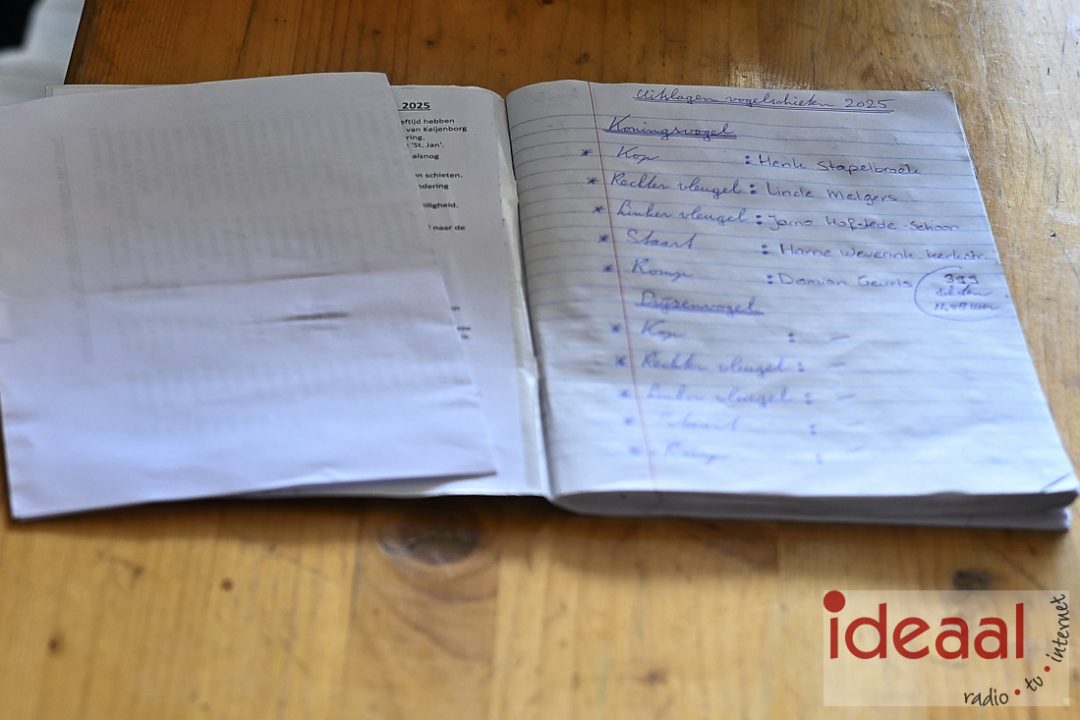 2025
eftijd hebben
van Keijenborg
ring.
'St. Jan'.
alsnog
n schieten.
ndering
iligheid.
naar de
Uitslagen vogelschieten 2025
Koningsvogel
* Kop : Henk Stapelbroek
* Rechter vleugel : Linde Melgers
* Linker vleugel : Jarno Hofstede - Schoon
* Staart : Harrie Weverink kerkstr.
* Romp : Damian Geurts 399
schoten
Prijzenvogel
* Kop : -
* Rechter vleugel : -
* Linker vleugel : -
* Staart : -
* Romp :
ideaal
radio • tv • internet